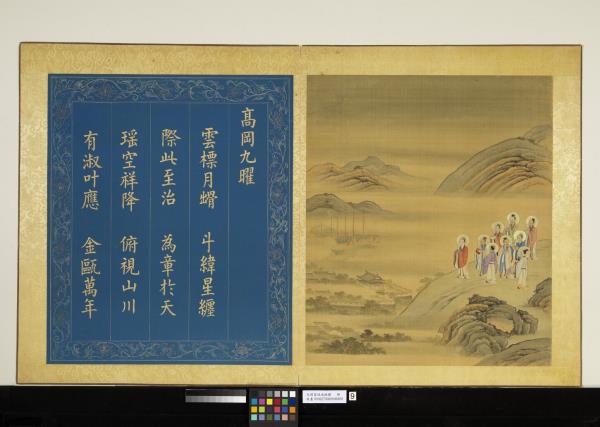 高岡九曜
雲標月蝟 斗緯星纏
際此至治 為章於天
瑶空祥降 俯視山川
有淑叶應 金甌萬年
9